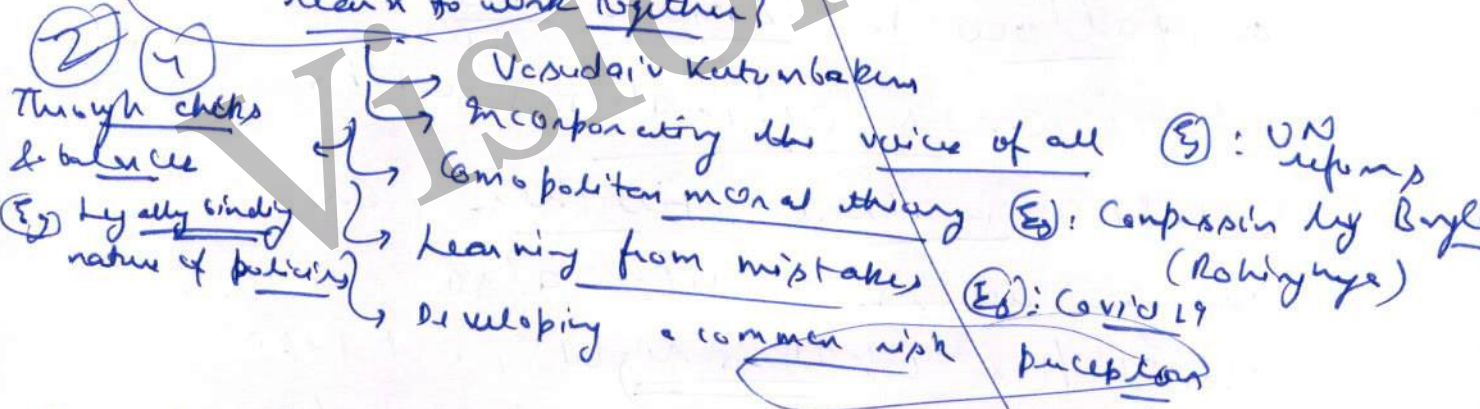 learn to work together?
② ④
Through checks
& balances
Eg Legally binding
nature of policies
Vasudaiv Kutumbakam
Incorporating the voice of all Eg: UN
reforms
Comopolitan moral theory Eg: Compassion by Bngl
(Rohingyya)
Learning from mistakes Eg: Covid 19
Developing a common risk perception
Vision